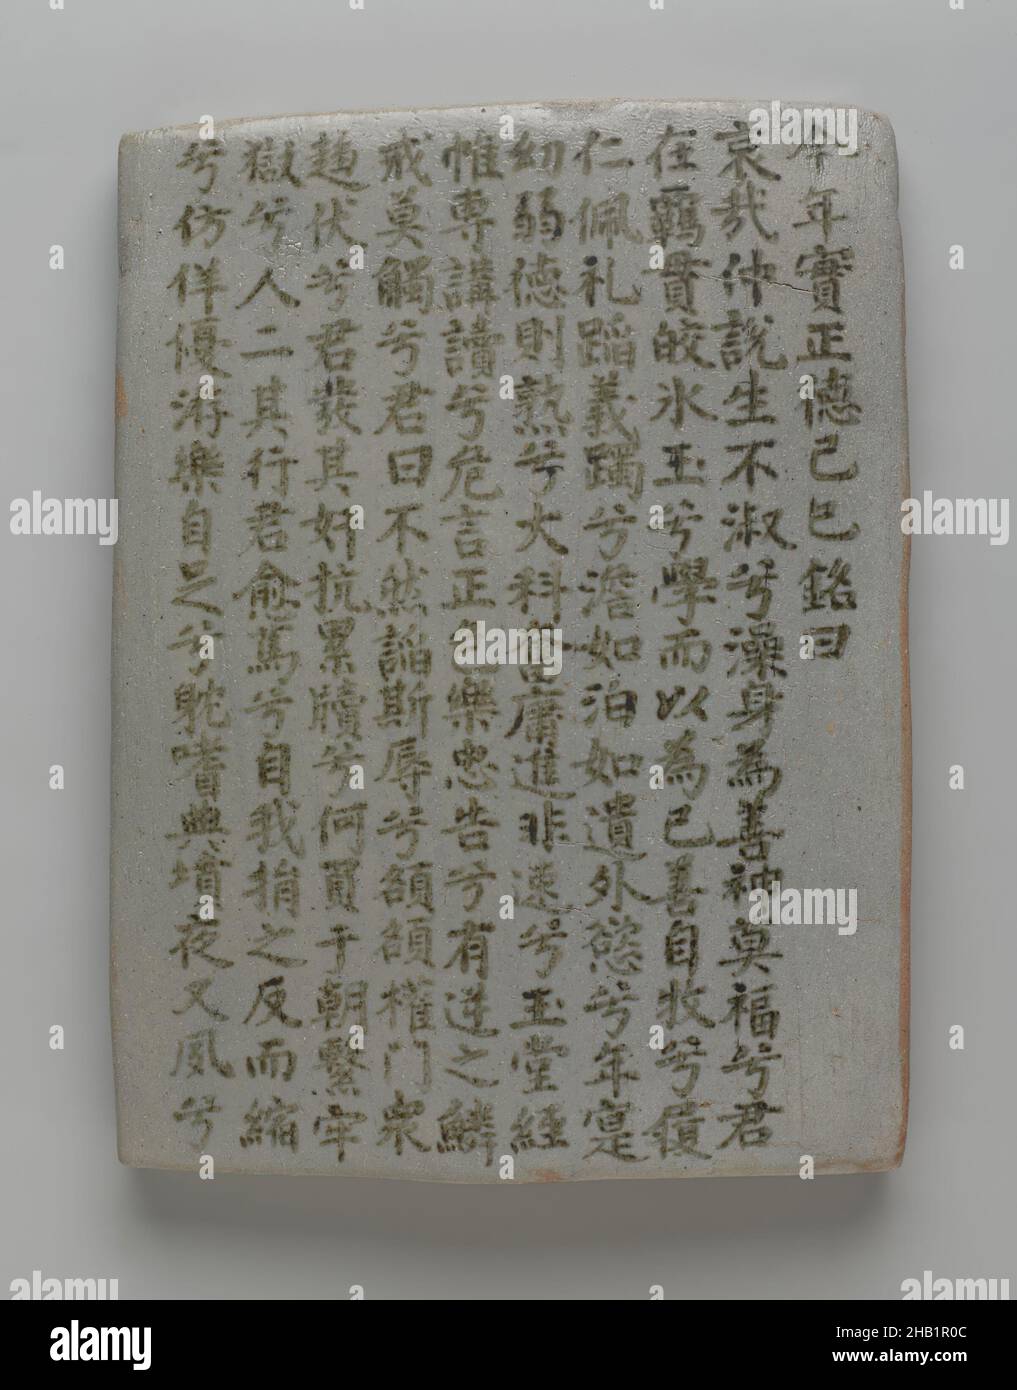 今年實正德己巳銘曰
哀哉仲說生不淑兮澡身為善神莫福兮君
在羈貫皎氷玉兮學而以為己善自牧兮積
仁佩礼蹈義躅兮澹如泊如遺外慾兮年寔
幼弱德則熟兮大科奮庸進非速兮玉堂經
帷専講讀兮危言正色樂忠告兮有逆之鱗
戒莫觸兮君曰不然諂斯辱兮頟頟權門衆
趨伏兮君發其奸抗累牘兮何負于朝繫牢
獄兮人二其行君愈篤兮自我捐之反而縮
兮仿佯優游樂自足兮耽嗜典墳夜又夙兮
alamy
Image ID: 2HB1R0C
www.alamy.com